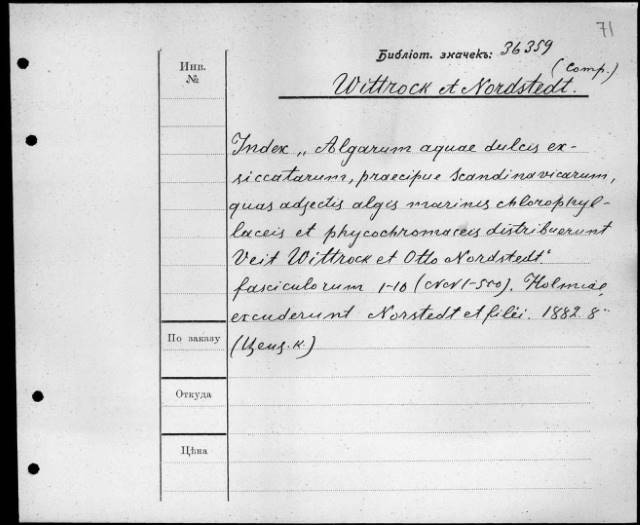 71
Библіот. значекъ: 36359
(Comp.)
Wittrock et Nordstedt.
Инв.
№
Index „Algarum aquae dulcis ex-
siccatarum, praecipue Scandinavicarum,
quas adjectis algis marinis chlorophyl-
laceis et phycochromaceis distribuerunt
Veit Wittrock et Otto Nordstedt"
fasciculorum 1-10 (NN 1-500). Holmiae,
excuderunt Norstedt et filii. 1882. 8°
По заказу
(Ценз.к.)
Откуда
Цѣна